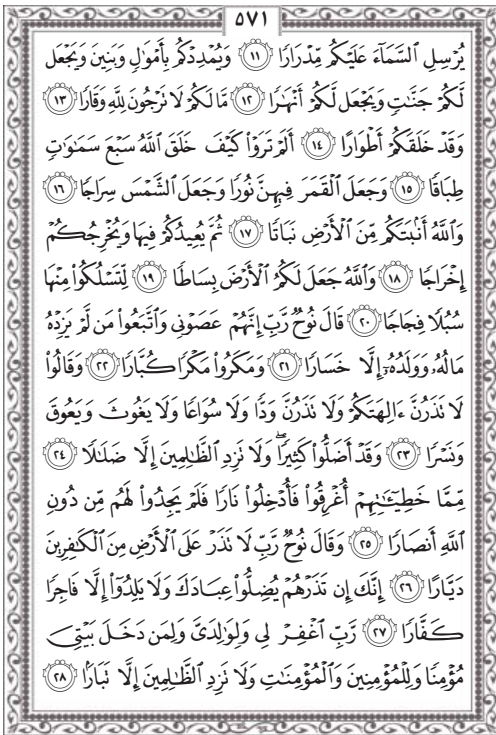 ٥٧١
يُرْسِلِ ٱلسَّمَآءَ عَلَيْكُم مِّدْرَارًا ١١ وَيُمْدِدْكُم بِأَمْوَٰلٍ وَبَنِينَ وَيَجْعَل
لَّكُمْ جَنَّٰتٍ وَيَجْعَل لَّكُمْ أَنْهَٰرًا ١٢ مَّا لَكُمْ لَا نَرْجُونَ لِلَّهِ وَقَارًا ١٣
وَقَدْ خَلَقَكُمْ أَطْوَارًا ١٤ أَلَمْ تَرَوْا۟ كَيْفَ خَلَقَ ٱللَّهُ سَبْعَ سَمَٰوَٰتٍ
طِبَاقًا ١٥ وَجَعَلَ ٱلْقَمَرَ فِيهِنَّ نُورًا وَجَعَلَ ٱلشَّمْسَ سِرَاجًا ١٦
وَٱللَّهُ أَنۢبَتَكُم مِّنَ ٱلْأَرْضِ نَبَاتًا ١٧ ثُمَّ يُعِيدُكُمْ فِيهَا وَيُخْرِجُكُمْ
إِخْرَاجًا ١٨ وَٱللَّهُ جَعَلَ لَكُمُ ٱلْأَرْضَ بِسَاطًا ١٩ لِّتَسْلُكُوا۟ مِنْهَا
سُبُلًا فِجَاجًا ٢٠ قَالَ نُوحٌ رَّبِّ إِنَّهُمْ عَصَوْنِى وَٱتَّبَعُوا۟ مَن لَّمْ يَزِدْهُ
مَالُهُۥ وَوَلَدُهُۥٓ إِلَّا خَسَارًا ٢١ وَمَكَرُوا۟ مَكْرًا كُبَّارًا ٢٢ وَقَالُوا۟
لَا تَذَرُنَّ ءَالِهَتَكُمْ وَلَا تَذَرُنَّ وَدًّا وَلَا سُوَاعًا وَلَا يَغُوثَ وَيَعُوقَ
وَنَسْرًا ٢٣ وَقَدْ أَضَلُّوا۟ كَثِيرًا ۖ وَلَا تَزِدِ ٱلظَّٰلِمِينَ إِلَّا ضَلَٰلًا ٢٤
مِّمَّا خَطِيٓـَٰٔتِهِمْ أُغْرِقُوا۟ فَأُدْخِلُوا۟ نَارًا فَلَمْ يَجِدُوا۟ لَهُم مِّن دُونِ
ٱللَّهِ أَنصَارًا ٢٥ وَقَالَ نُوحٌ رَّبِّ لَا تَذَرْ عَلَى ٱلْأَرْضِ مِنَ ٱلْكَٰفِرِينَ
دَيَّارًا ٢٦ إِنَّكَ إِن تَذَرْهُمْ يُضِلُّوا۟ عِبَادَكَ وَلَا يَلِدُوٓا۟ إِلَّا فَاجِرًا
كَفَّارًا ٢٧ رَّبِّ ٱغْفِرْ لِى وَلِوَٰلِدَىَّ وَلِمَن دَخَلَ بَيْتِىَ
مُؤْمِنًا وَلِلْمُؤْمِنِينَ وَٱلْمُؤْمِنَٰتِ وَلَا تَزِدِ ٱلظَّٰلِمِينَ إِلَّا تَبَارًۢا ٢٨